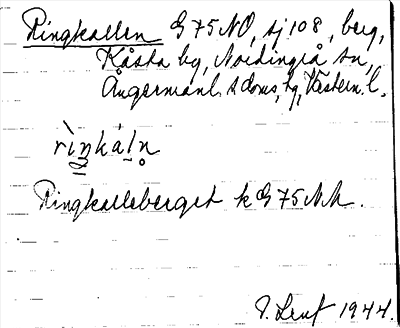 Ringkallen G 75 NO, sj 108, berg,
Kåsta by, Nordingrå sn,
Ångermanl. s doms, hg, Västern. l.
rìŋkáḷn̥
Ringkalleberget k G 75 N.
1944.